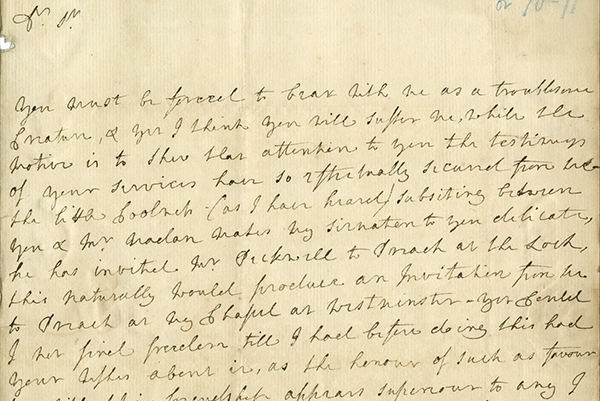 Dr Sr
or 70-71
You must be forced to bear with me as a troublesome
Creature, & yet I think you will suffer me, while the
motive is to shew that attention to you the testimonys
of your services have so effectually secured from me-
the little Coolness (as I have heard) subsiting between
you & Mr Madan makes my situation to you delicate,
he has invited Mr Peckwell to Preach at the Lock,
this naturally would produce an Invitation from me
to Preach at my Chapel at Westminster - yet Could
I not find freedom till I had before doing this had
your wishes about it, as the honour of such as favour
friendship appears superiour to any I